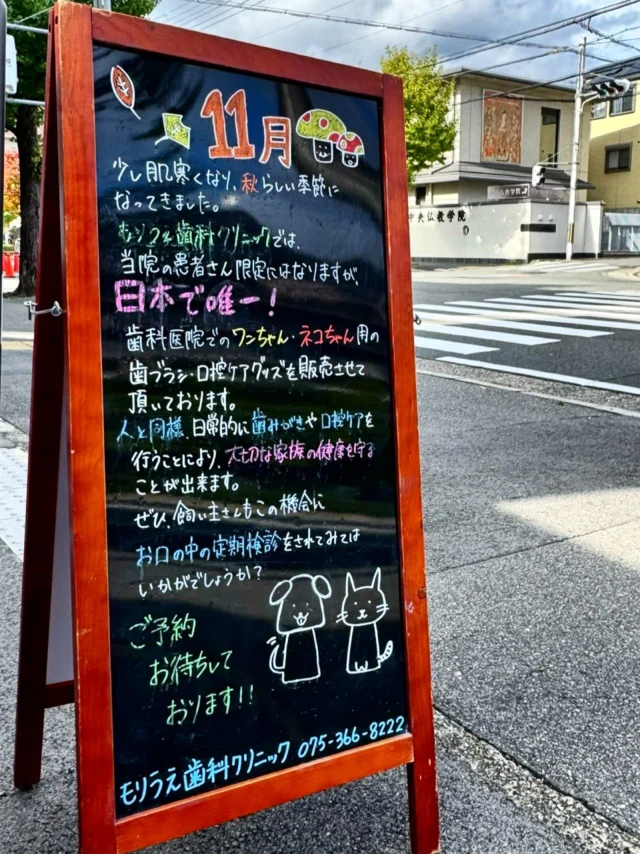 11月
少し肌寒くなり、秋らしい季節に
なってきました。
もりうえ歯科クリニックでは、
当院の患者さん限定にはなりますが、
日本で唯一!
歯科医院でのワンちゃん・ネコちゃん用の
歯ブラシ・口腔ケアグッズを販売させて
頂いております。
人と同様、日常的に歯みがきや口腔ケアを
行うことにより、大切な家族の健康を守る
ことが出来ます。
ぜひ、飼い主さんもこの機会に
お口の中の定期検診をされてみては
いかがでしょうか?
ご予約
お待ちして
おります!!
モリうえ歯科クリニック 075-366-8222
中央仏教学院